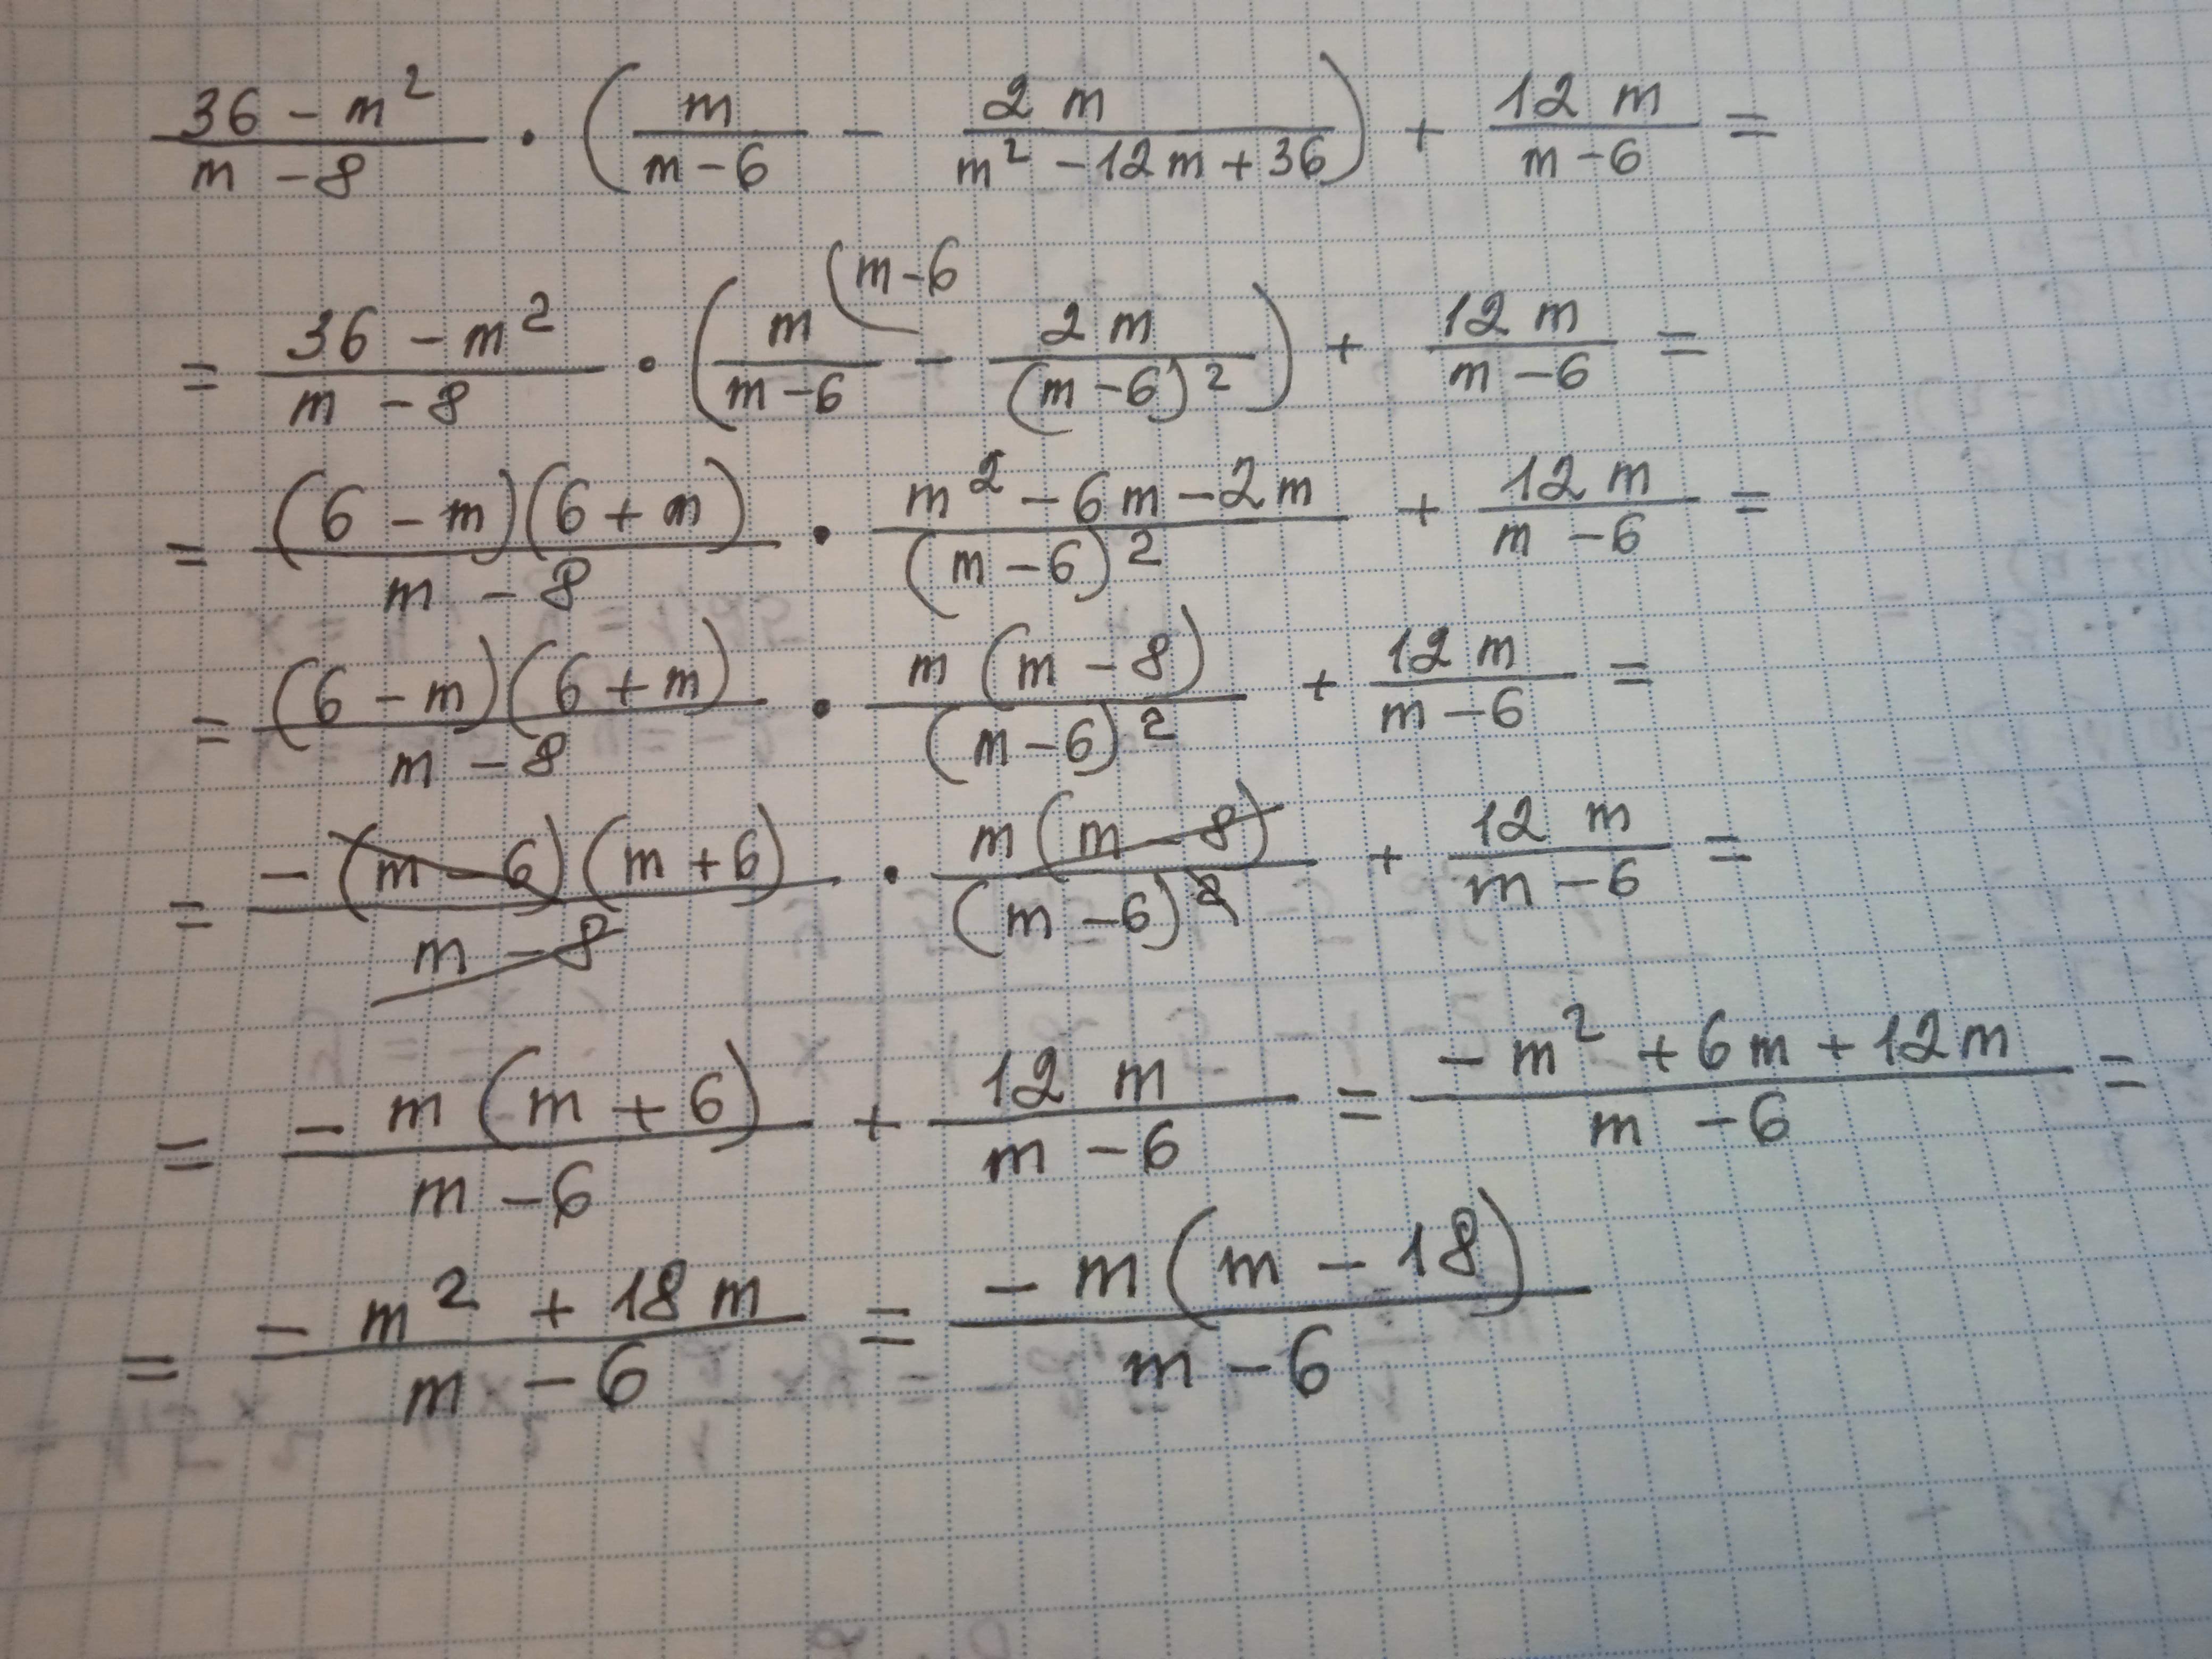 (36 - m²)/(m - 8) · (m/(m - 6) - 2m/(m² - 12m + 36)) + 12m/(m - 6) =
(m-6
= (36 - m²)/(m - 8) · (m/(m - 6) - 2m/(m - 6)²) + 12m/(m - 6) =
= (6 - m)(6 + m)/(m - 8) · (m² - 6m - 2m)/(m - 6)² + 12m/(m - 6) =
= (6 - m)(6 + m)/(m - 8) · m(m - 8)/(m - 6)² + 12m/(m - 6) =
= -(m - 6)(m + 6)/(m - 8) · m(m - 8)/(m - 6)² + 12m/(m - 6) =
= -m(m + 6)/(m - 6) + 12m/(m - 6) = (-m² + 6m + 12m)/(m - 6) =
= (-m² + 18m)/(m - 6) = -m(m - 18)/(m - 6)